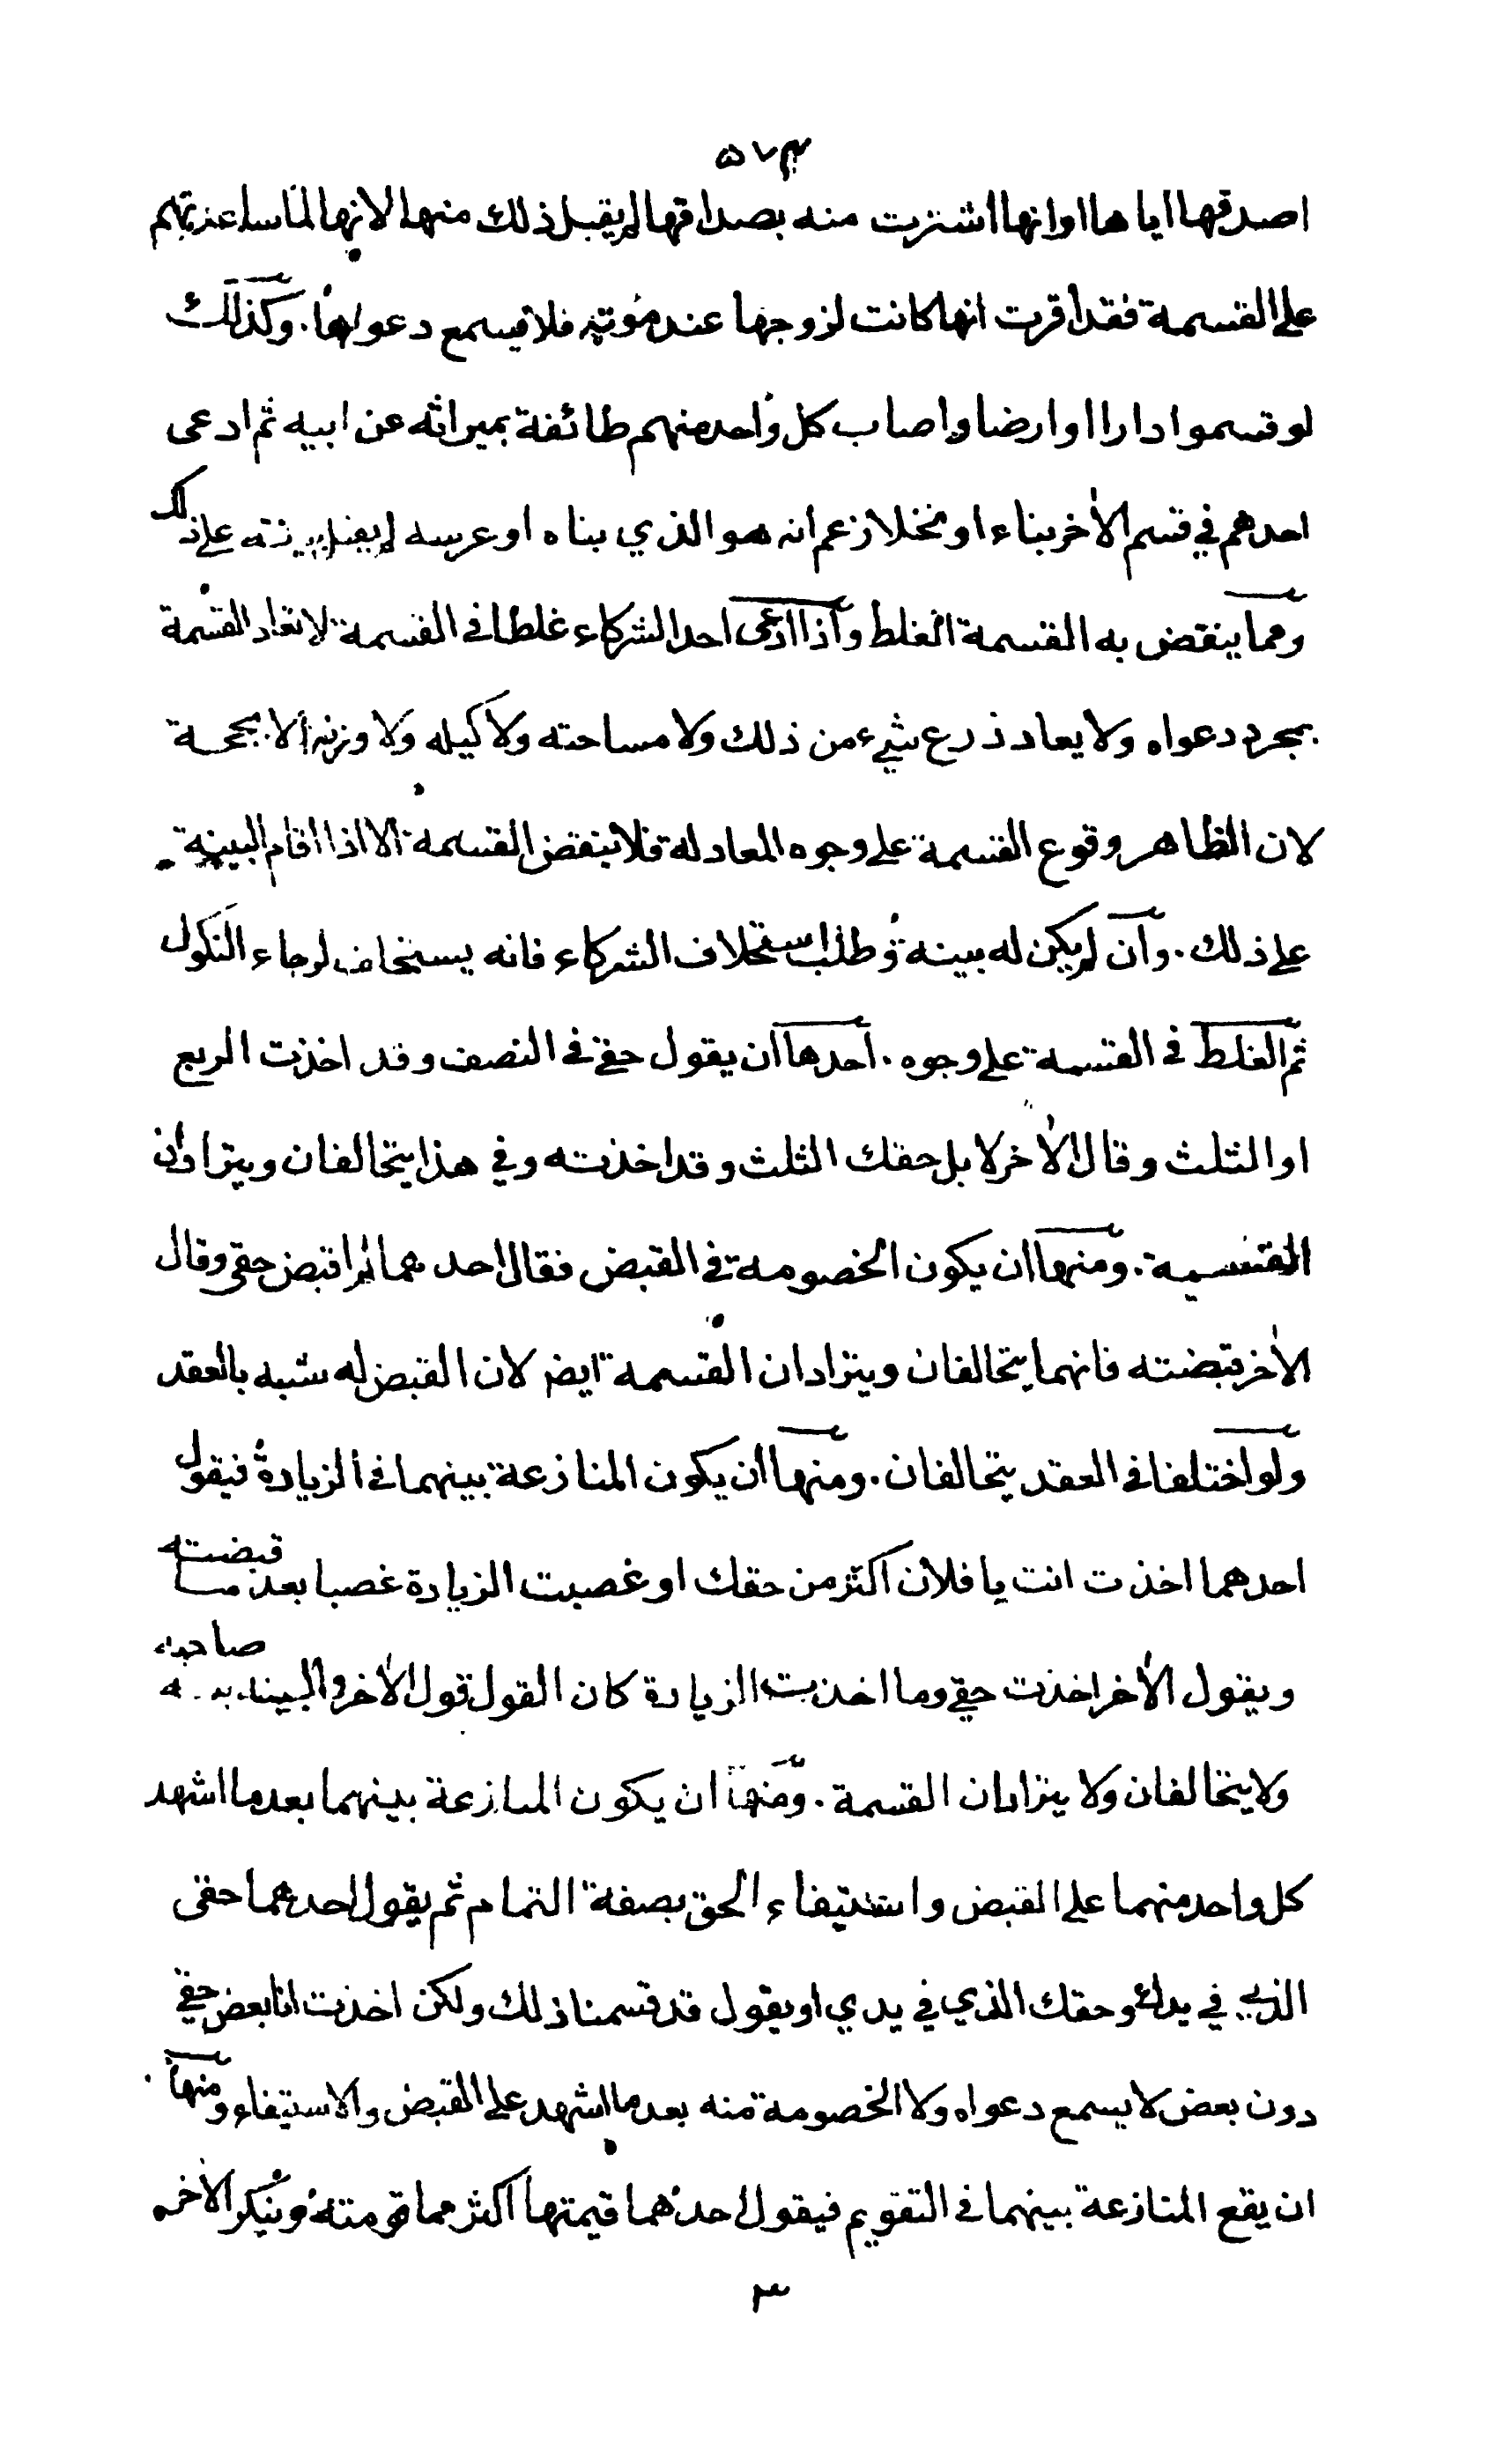 ٥٧٣
اصدقها اياها او انها اشترت منه بصداقها لم يقبل ذلك منها لانها لما ساعدتهم
على القسمة فقد اقرت انها كانت لزوجها عند موته فلا يسمع دعواها. وكذلك
لو قسموا دارا او ارضا واصاب كل واحد منهم طائفة بميراثه عن ابيه ثم ادعى
احدهم في قسم الأخر بناء او نخلا زعم انه هو الذي بناه او غرسه لم يقبل بينته على ذلك
ومما ينقض به القسمة الغلط واذا ادعى احد الشركاء غلطا في القسمة لا تعاد القسمة
بمجرد دعواه ولا يعاد ذرع شيء من ذلك ولا مساحته ولا كيله ولا وزنه الا بحجة
لان الظاهر وقوع القسمة على وجوه المعادلة فلا ينقض القسمة الا اذا اقام البينة
على ذلك. وان لم يكن له بينة وطلب استحلاف الشركاء فانه يستحلف لرجاء النكول
ثم الغلط في القسمة على وجوه. احدها ان يقول حقي في النصف وقد اخذت الربع
او الثلث وقال الأخر لا بل حقك الثلث وقد اخذته وفي هذا يتحالفان ويترادان
القسمة. ومنها ان يكون الخصومة في القبض فقال احدهما لم اقبض حقي وقال
الأخر قبضته فانهما يتحالفان ويترادان القسمة ايضا لان القبض له شبه بالعقد
ولو اختلفا في العقد يتحالفان. ومنها ان يكون المنازعة بينهما في الزيادة فيقول
احدهما اخذت انت يا فلان اكثر من حقك او غصبت الزيادة غصبا بعد ما قبضته
ويقول الأخر اخذت حقي وما اخذت الزيادة كان القول قول الأخر والبينة بينة صاحبه
ولا يتحالفان ولا يترادان القسمة. ومنها ان يكون المنازعة بينهما بعد ما اشهد
كل واحد منهما على القبض واستيفاء الحق بصفة التمام ثم يقول احدهما حقي
الذي في يدك وحقك الذي في يدي او يقول قد قسمنا ذلك ولكن اخذت انا بعض حقي
دون بعض لا يسمع دعواه ولا الخصومة منه بعد ما اشهد على القبض والاستيفاء ومنها
ان يقع المنازعة بينهما في التقويم فيقول احدهما قيمتها اكثر مما قومته وينكر الأخر
٣